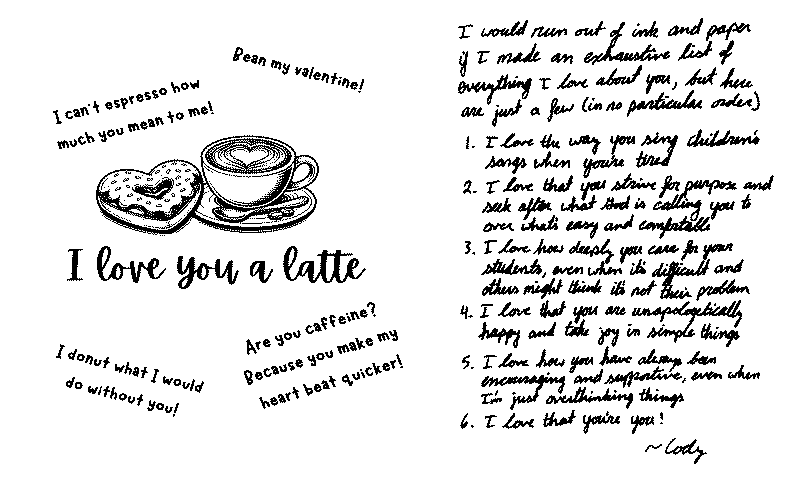 Bean my valentine!
I can't espresso how
much you mean to me!
I love you a latte
I donut what I would
do without you!
Are you caffeine?
Because you make my
heart beat quicker!
I would run out of ink and paper
if I made an exhaustive list of
everything I love about you, but here
are just a few (in no particular order)
1. I love the way you sing children's
songs when you're tired
2. I love that you strive for purpose and
seek after what God is calling you to
over what's easy and comfortable
3. I love how deeply you care for your
students, even when it's difficult and
others might think it's not their problem
4. I love that you are unapologetically
happy and take joy in simple things
5. I love how you have always been
encouraging and supportive, even when
I'm just overthinking things
6. I love that you're you!
~Cody